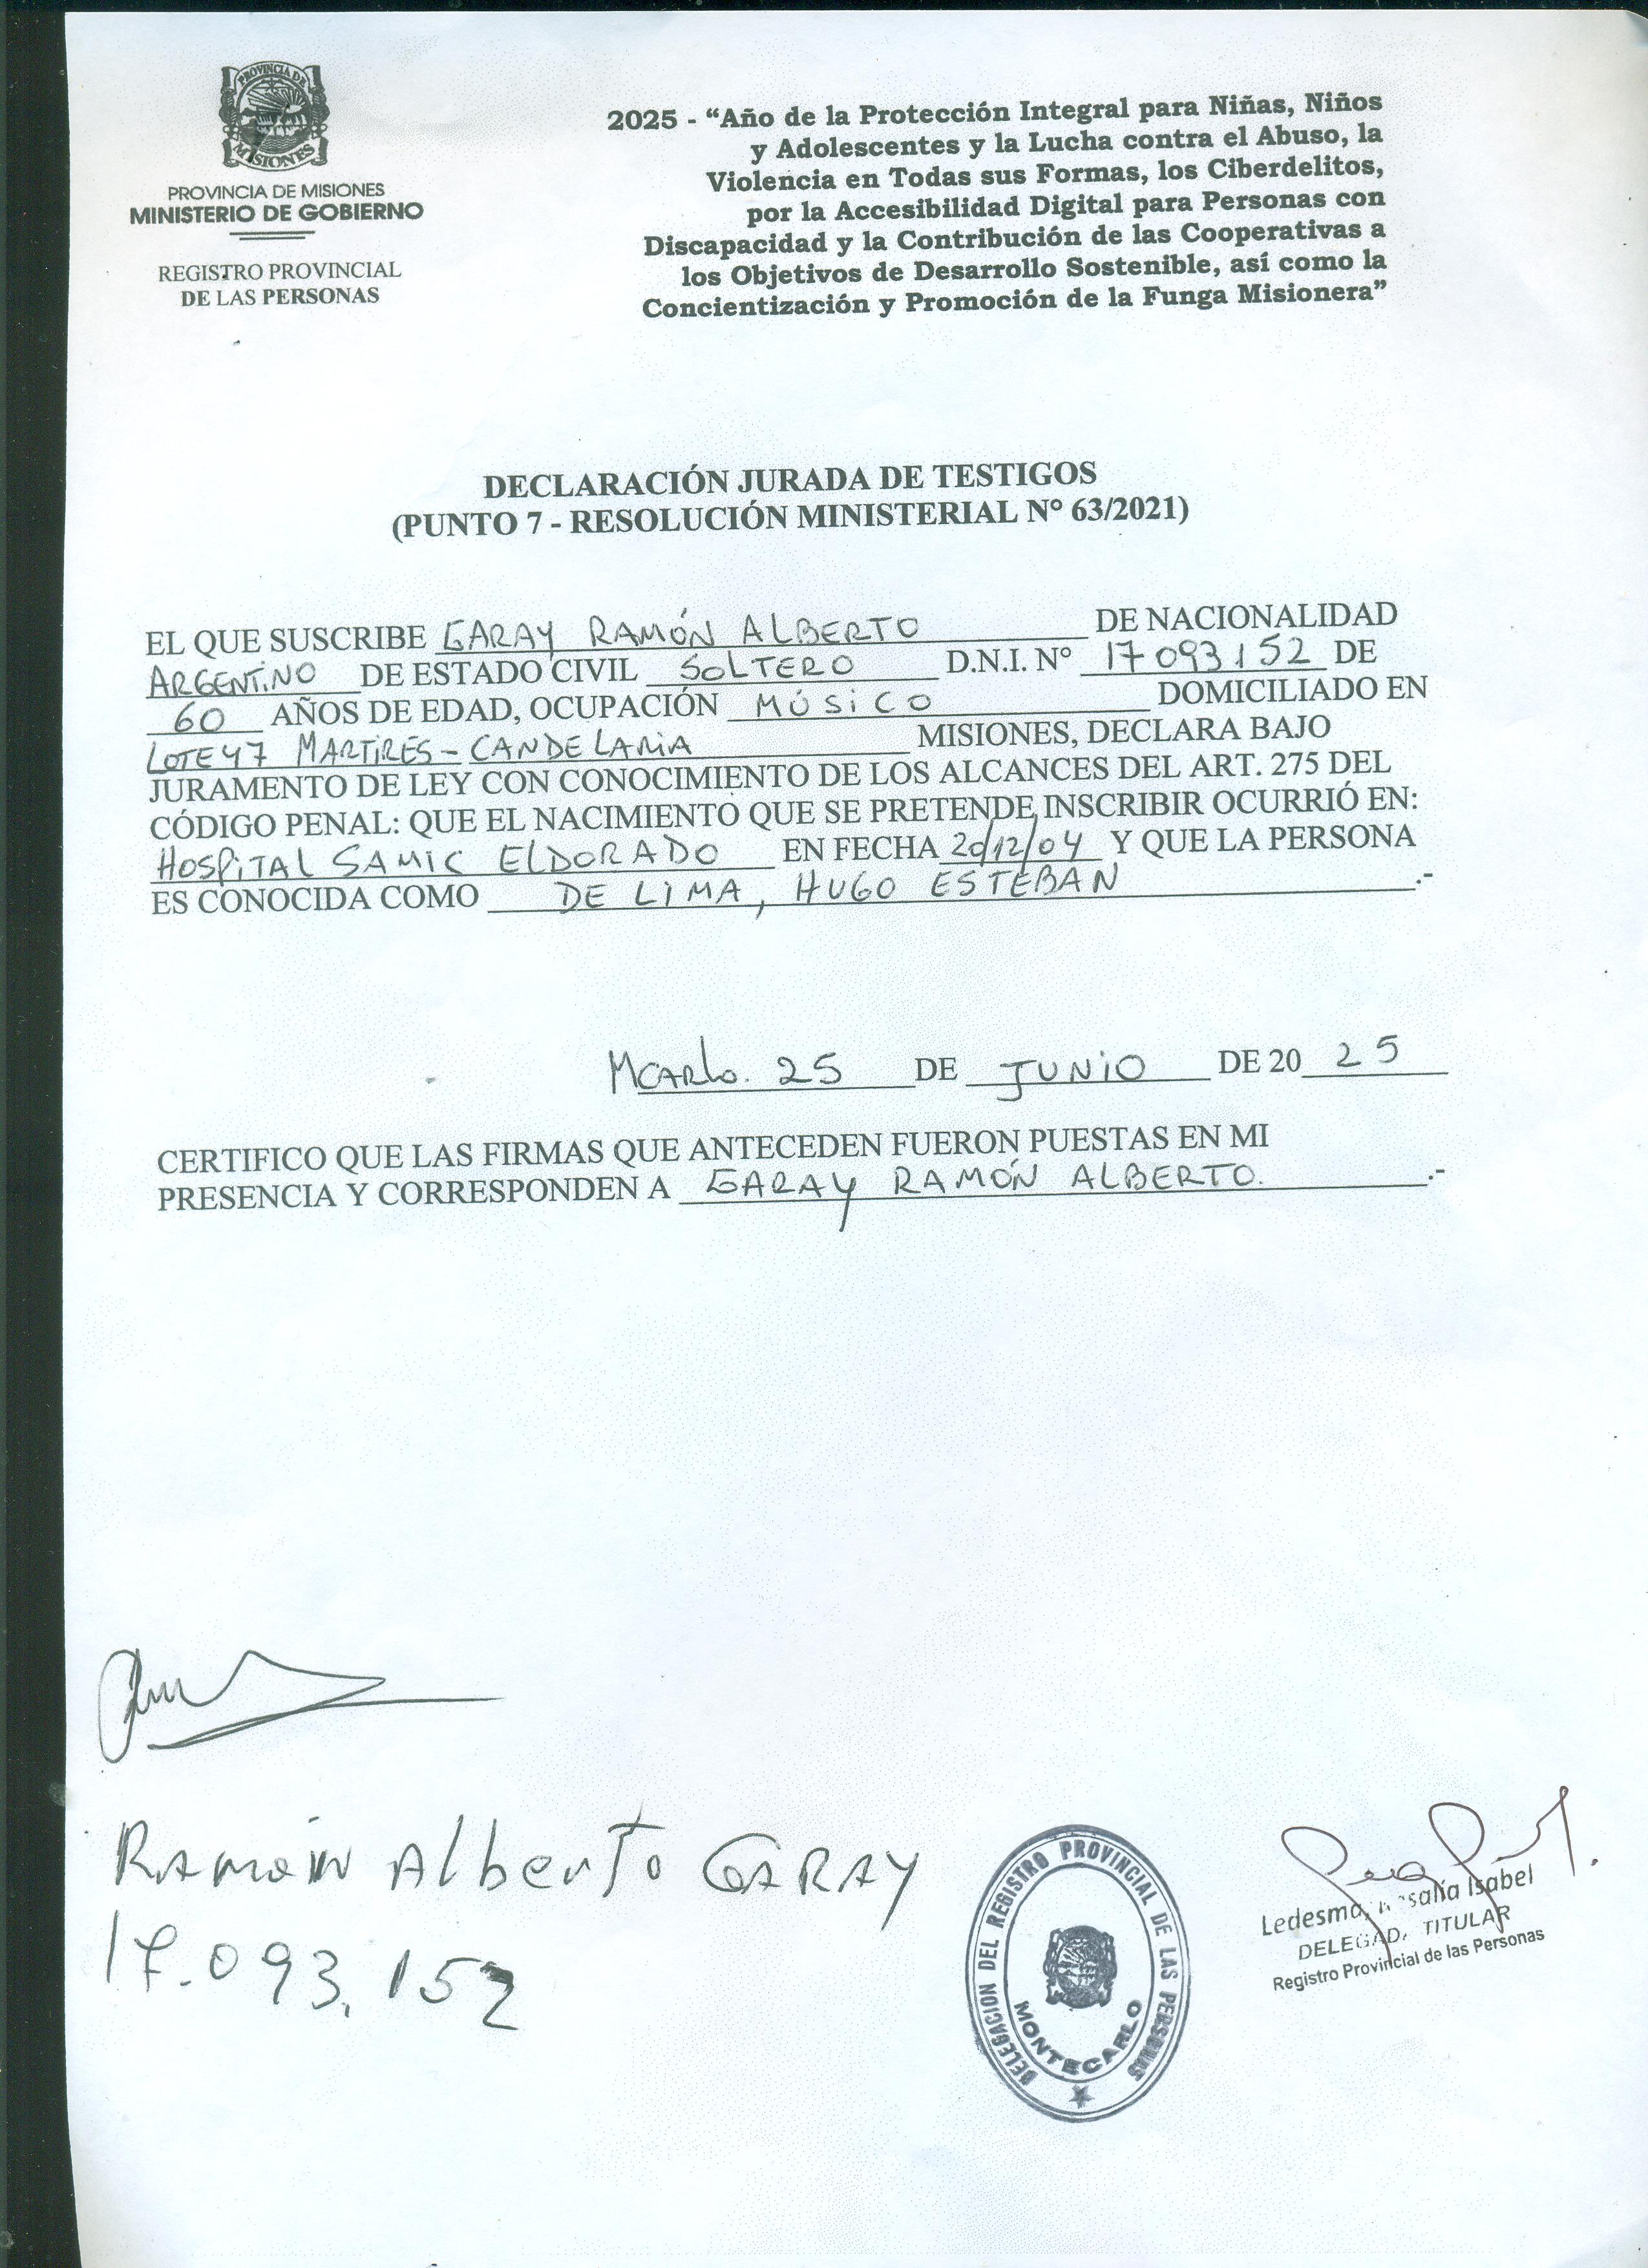 PROVINCIA DE
MISIONES
PROVINCIA DE MISIONES
MINISTERIO DE GOBIERNO
REGISTRO PROVINCIAL
DE LAS PERSONAS
2025 - “Año de la Protección Integral para Niñas, Niños
y Adolescentes y la Lucha contra el Abuso, la
Violencia en Todas sus Formas, los Ciberdelitos,
por la Accesibilidad Digital para Personas con
Discapacidad y la Contribución de las Cooperativas a
los Objetivos de Desarrollo Sostenible, así como la
Concientización y Promoción de la Funga Misionera”
DECLARACIÓN JURADA DE TESTIGOS
(PUNTO 7 - RESOLUCIÓN MINISTERIAL N° 63/2021)
EL QUE SUSCRIBE GARAY RAMÓN ALBERTO DE NACIONALIDAD
ARGENTINO DE ESTADO CIVIL SOLTERO D.N.I. N° 17 093 152 DE
60 AÑOS DE EDAD, OCUPACIÓN MÚSICO DOMICILIADO EN
LOTE 47 MARTIRES - CANDELARIA MISIONES, DECLARA BAJO
JURAMENTO DE LEY CON CONOCIMIENTO DE LOS ALCANCES DEL ART. 275 DEL
CÓDIGO PENAL: QUE EL NACIMIENTO QUE SE PRETENDE INSCRIBIR OCURRIÓ EN:
HOSPITAL SAMIC ELDORADO EN FECHA 20/12/04 Y QUE LA PERSONA
ES CONOCIDA COMO DE LIMA, HUGO ESTEBAN .-
MCARLO. 25 DE JUNIO DE 20 25
CERTIFICO QUE LAS FIRMAS QUE ANTECEDEN FUERON PUESTAS EN MI
PRESENCIA Y CORRESPONDEN A GARAY RAMÓN ALBERTO. .-
RAMÓN Alberto GARAY
17.093.152
DELEGACION DEL REGISTRO PROVINCIAL DE LAS PERSONAS
MONTECARLO
Ledesma, Rosalía Isabel
DELEGADA TITULAR
Registro Provincial de las Personas